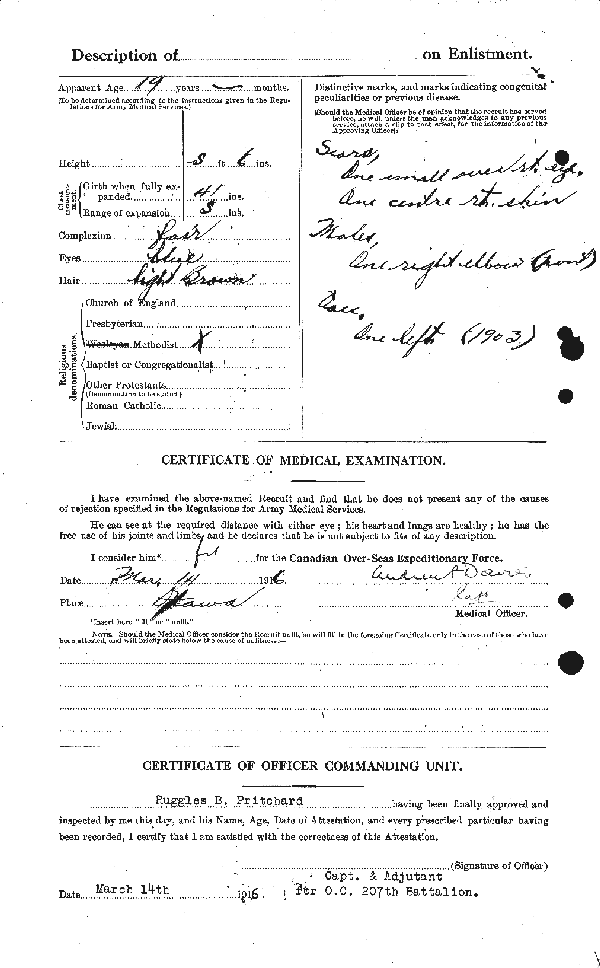 Description of on Enlistment.
Apparent Age 19 years months.
(To be determined according to the instructions given in the Regulations for Army Medical Services.)
Height 5 ft 6 ins.
Chest measurement.
Girth when fully expanded 41 ins.
Range of expansion 3 ins.
Complexion fair
Eyes blue
Hair light Brown
Religious denominations.
Church of England
Presbyterian
Wesleyan Methodist X
Baptist or Congregationalist
Other Protestants
(Denomination to be stated.)
Roman Catholic
Jewish
Distinctive marks, and marks indicating congenital
peculiarities or previous disease.
(Should the Medical Officer be of opinion that the recruit has served
before, he will, unless the man acknowledges to any previous
service, attach a slip to that effect, for the information of the
Approving Officer).
Scars,
One small over rt. eye.
One centre rt. shin
Moles,
One right elbow (front)
Vacc.
One left (1903)
CERTIFICATE OF MEDICAL EXAMINATION.
I have examined the above-named Recruit and find that he does not present any of the causes
of rejection specified in the Regulations for Army Medical Services.
He can see at the required distance with either eye; his heart and lungs are healthy; he has the
free use of his joints and limbs, and he declares that he is not subject to fits of any description.
I consider him* fit for the Canadian Over-Seas Expeditionary Force.
Date Mar, 14 1916
Place Ottawa
Capt
Medical Officer.
*Insert here "fit" or "unfit."
NOTE. Should the Medical Officer consider the Recruit unfit, he will fill in the foregoing Certificate only in the case of those who have
been attested, and will briefly state below the cause of unfitness:—
CERTIFICATE OF OFFICER COMMANDING UNIT.
Ruggles B. Pritchard having been finally approved and
inspected by me this day, and his Name, Age, Date of Attestation, and every prescribed particular having
been recorded, I certify that I am satisfied with the correctness of this Attestation.
(Signature of Officer)
Capt. & Adjutant
Date March 14th 1916 For O.C. 207th Battalion.